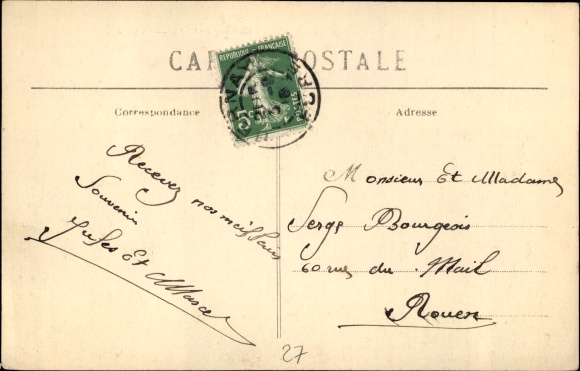 CARTE POSTALE
REPUBLIQUE FRANÇAISE
5
Correspondance
Adresse
Recevez nos meilleurs
Souvenirs
Jules Et Marcel
Monsieur Et Madame
Serge Bourgeois
60 rue du Mail
Rouen
27